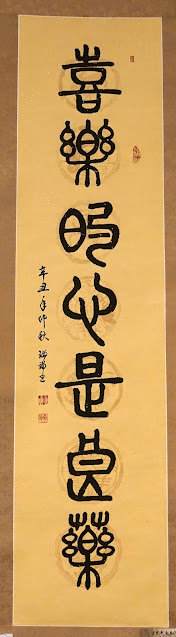 喜樂的心是良藥
辛丑年仲秋